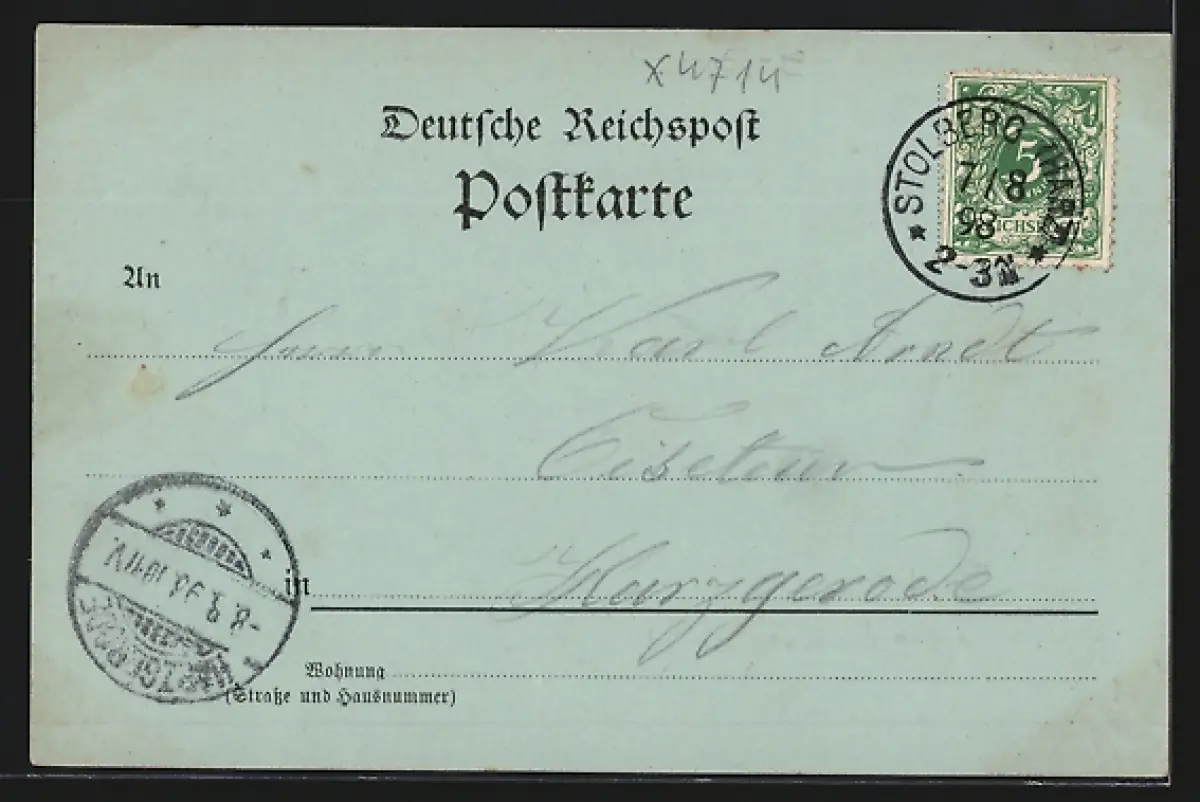 X4714
Deutſche Reichspoſt
Poſtkarte
STOLBERG (HARZ)
7/8
98
2-3N
5
REICHSPOST
An
Herrn Karl Arndt
in Harzgerode
8. 8. 98. 10-11V.
HARZGERODE
Wohnung
(Straße und Hausnummer)